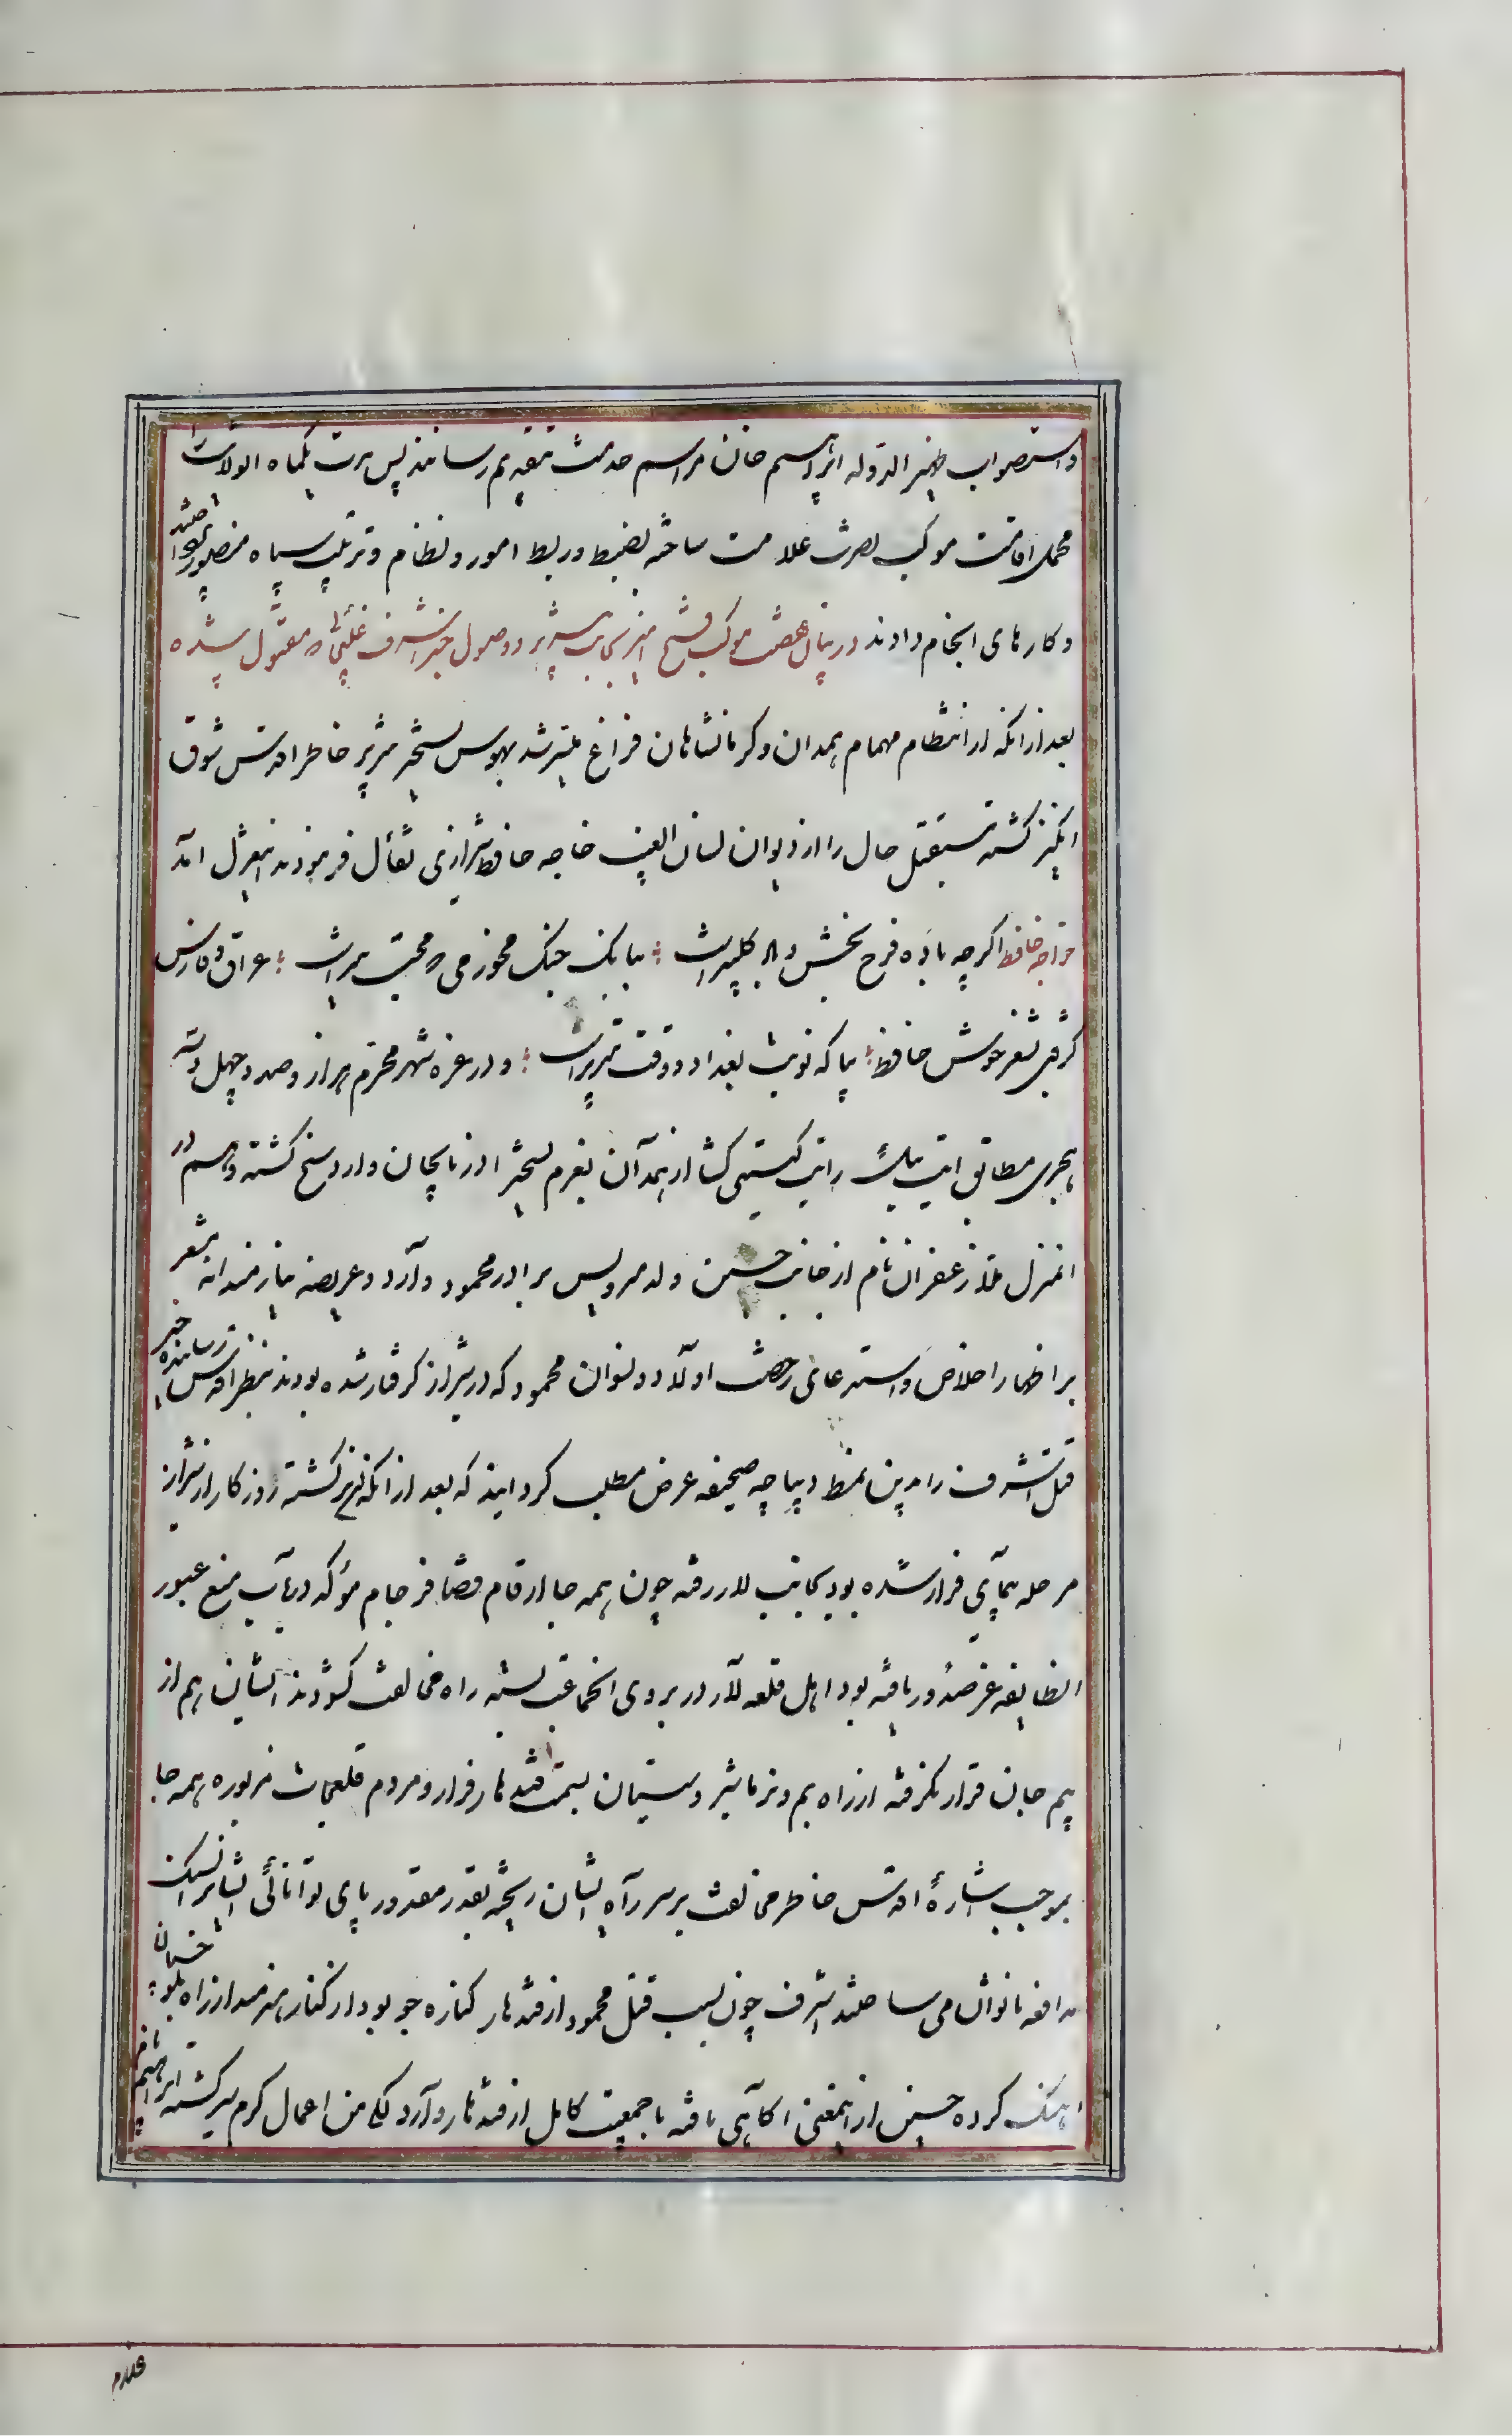 واستصواب ظهیر الدوله ابراهیم خان مراسم خدمت بتقدیم رسانند پس مدت یکماه الولایت
محل اقامت موکب نصرت علامت ساخته بضبط و ربط امور و نظام و ترتیب سپاه منصور پرداختند
و کارهای انجام دادند در بیان نهضت موکب فتح انگیز بجانب تبریز و وصول خبر اشرف غلیجائی که مقتول شده
بعد از انکه از انتظام مهمام همدان و کرمانشاهان فراغ میسر شد بهوس تسخیر تبریز خاطر اقدس شوق
انگیز گشته مستقبل حال را از دیوان لسان الغیب خاجه حافظ شیرازی تفأل فرمودند این غزل آمد
خواجه حافظ اگرچه باده فرح بخش و باد گلبیزاست ؛ ببانک چنک مخور می که محتسب تیزاست ؛ عراق و فارس
گرفتی بشعر خوش حافظ ؛ بیا که نوبت بغداد و وقت تبریزاست ؛ و در غره شهر محرم هزار و صد و چهل و سه
هجری مطابق ایت ییل رایت گیتی گشا از همدان بعزم تسخیر اذربایجان وارد سنخ گشته و هم در
انمنزل ملا زعفران نام از جانب حسین ولد میرویس برادر محمود وارد و عریضه نیازمندانه مشعر
بر اظهار اخلاص و استدعای رخصت اولاد و نسوان محمود که در شیراز گرفتار شده بودند بنظر اقدس رسانیده خبر
قتل اشرف را بدین نمط دیباچه صحیفه عرض مطلب گردانید که بعد از انکه برگشته روزگار از شیراز
مرحله پیمای فرار شده بود بجانب لار رفته چون همه جا ارقام قضا فرجام مؤکد در باب منع عبور
انطایفه عز صدور یافته بود اهل قلعه لار در بروی انجماعت بسته راه مخالفت گشودند ایشان هم از
بیم جان قرار نگرفته از راه بم و نرماشیر و سیستان بسمت قندهار فرار و مردم قلعجات مزبوره همه جا
بموجب اشارهٔ اقدس خاطر مخالفت بر سر راه ایشان ریخته بقدر مقدور پای توانائی ایشانرا سنک
مدافعه ناتوان می ساختند اشرف چون بسبب قتل محمود از قندهار کناره جو بود از کنار هیرمند از راه بلوچستان
اهنک کرده حسین از اینمعنی اگاهی یافته با جمعیت کامل از قندهار وارد لکی من اعمال گرمسیر گشته ابراهیم نام
غلام